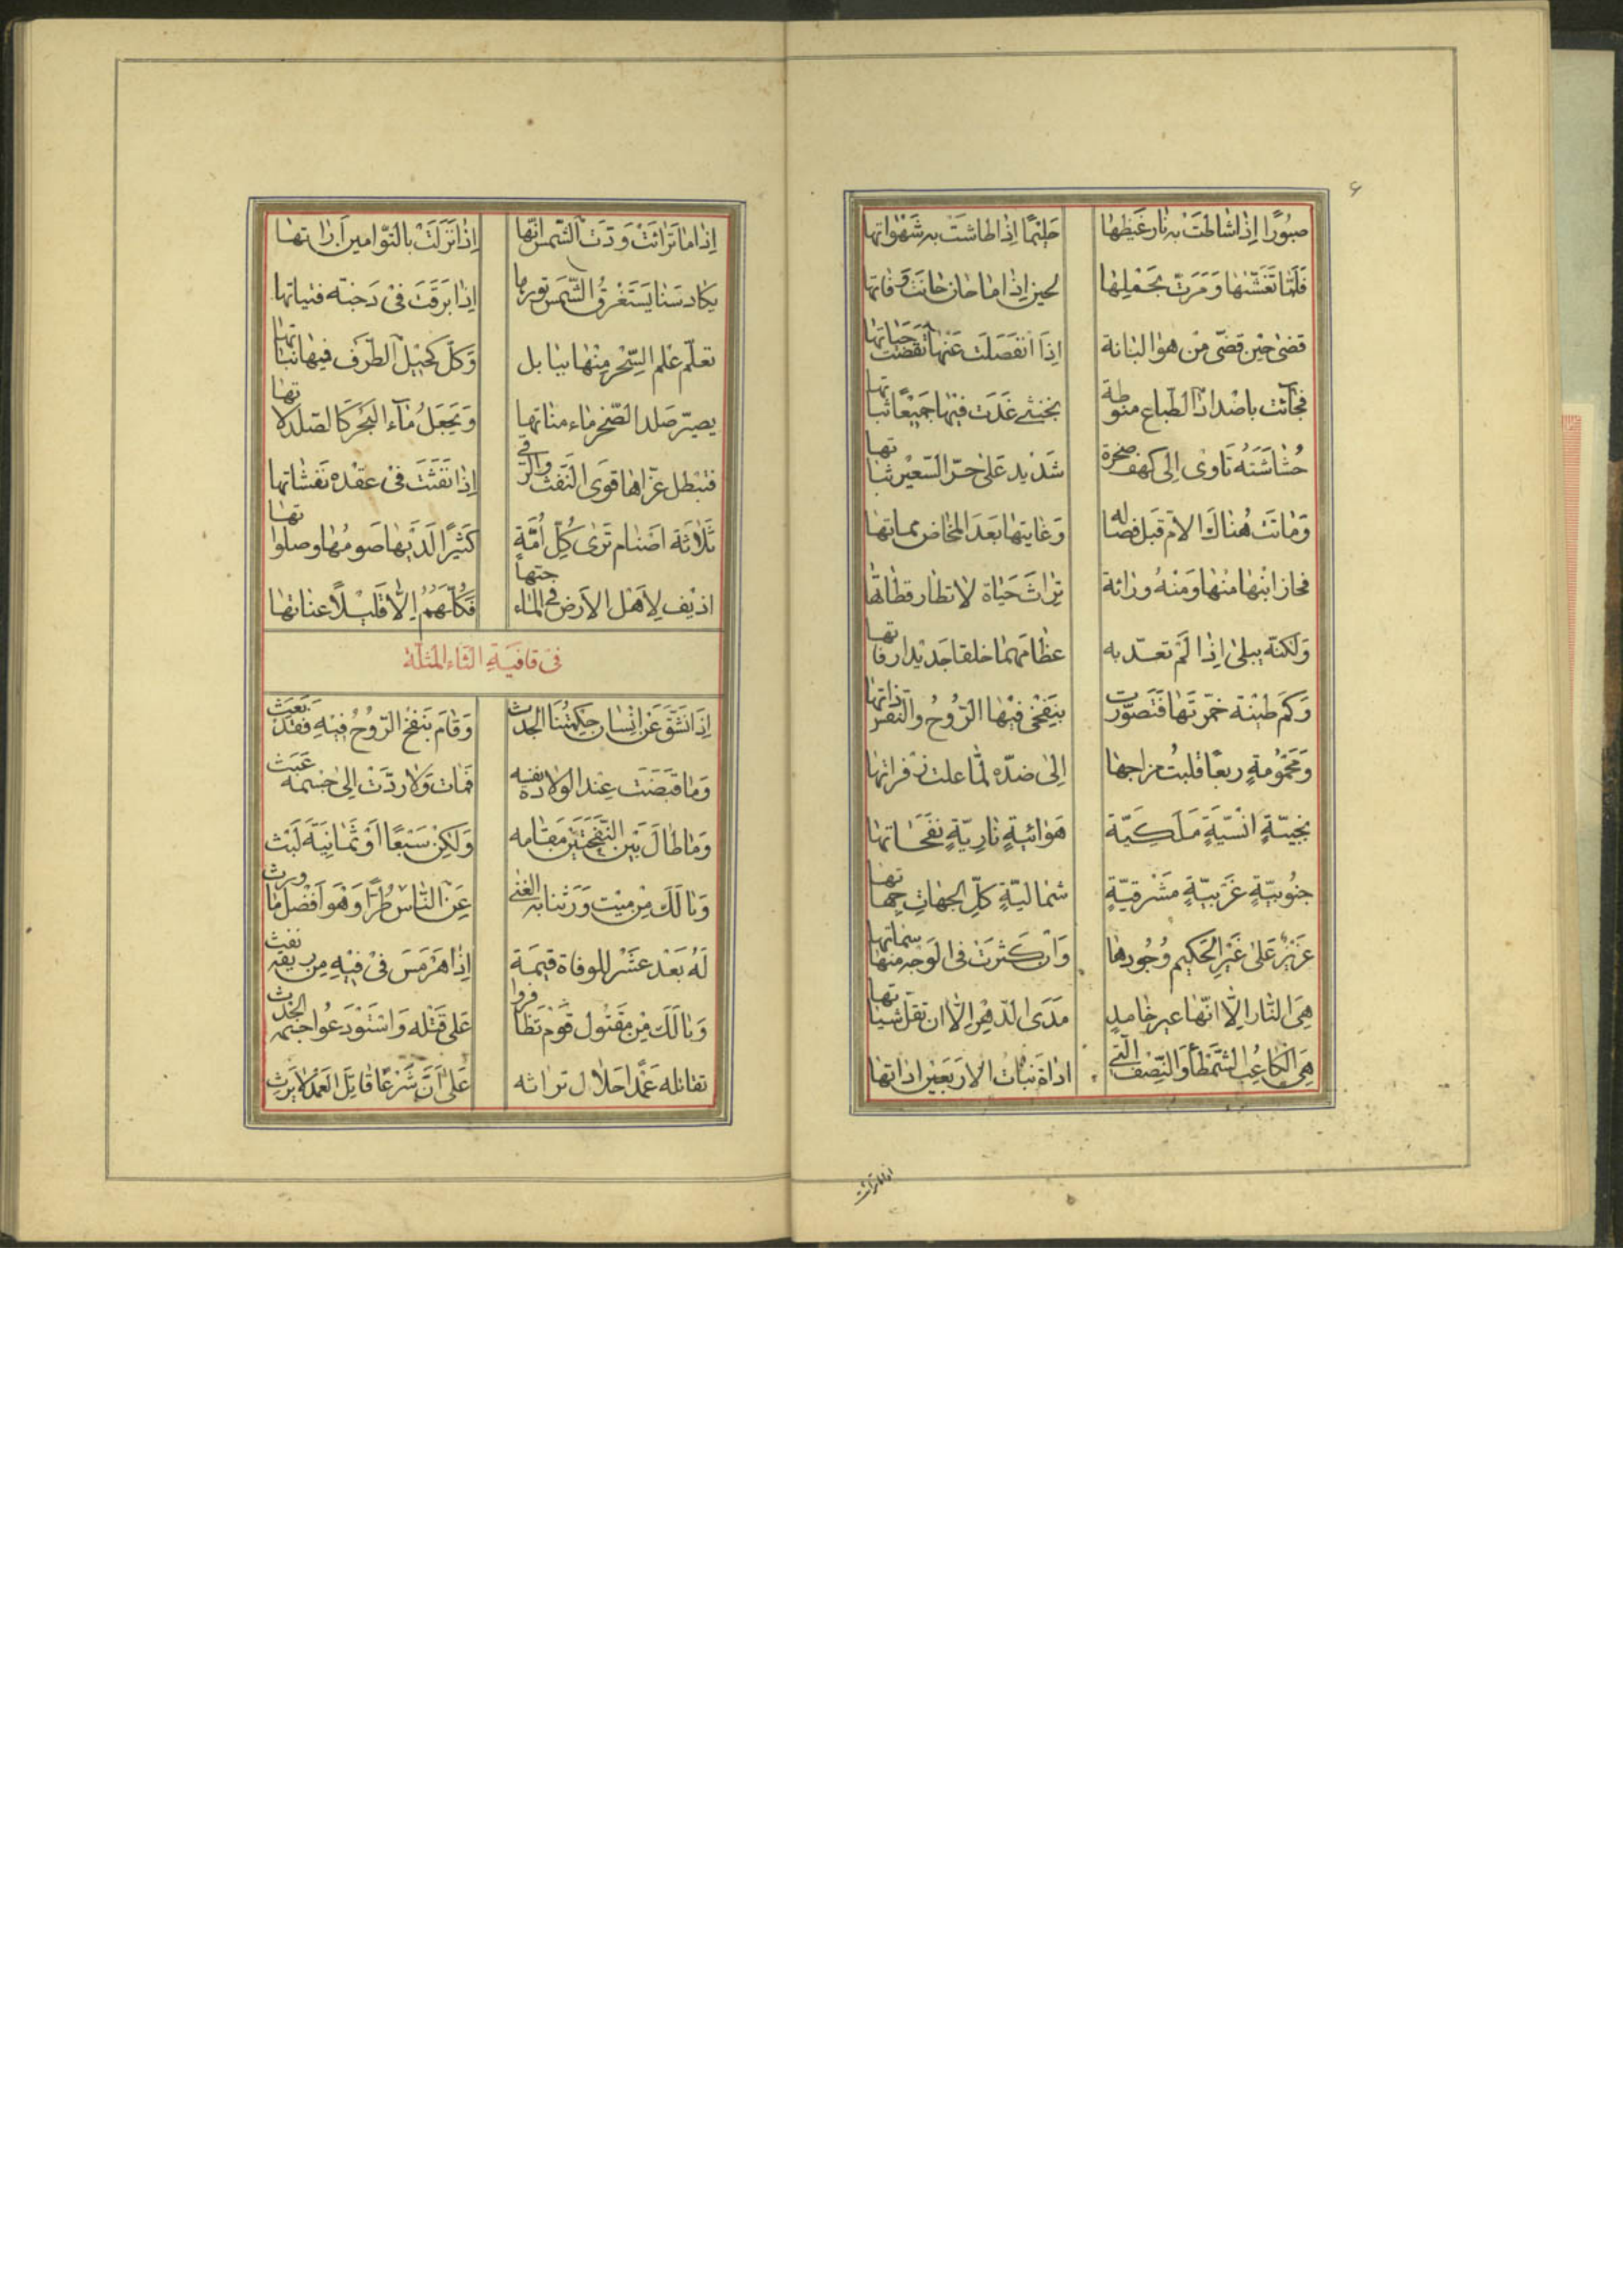 ۶
صبُورًا اِذا شاطَتْ به نار غَیظِها حَلیمًا اِذا طاشَتْ به شَهَواتها
فَلَمّا تَغَشّیٰها وَمَرَتّ بحَملِها لحین اِذا ما حان حانَتْ وَفاتها
قضیٰ حین قضّی مِن هوٰا لبانة اِذا انفَصَلَت عَنها تقضّت حَیاتها
فجائت باضداد الطّباع منوطة بخنثی غَدَت فیها جمیعًا ثباتها
حُشاشَتهُ تَأوی اِلی کهف صخرة شَدید علیٰ حَرّ السّعیر ثباتها
وَماتَت هُناك الاُمّ قَبل فصاله وَغایتها بَعدَ المخاض مماتها
فحاز ابنها منها وَمنهُ وراثة تراث حَیاة لا تطار قطاتها
وَلکنّه یبلیٰ اِذا لَمْ تعدّ به عظامهما خلقا جَدیدا رفاتها
وَکم طینة خمّرتها فتصوّرت بِنفخی فیها الرّوُح والنفس ذاتها
وَمحمُومةٍ ربعًا قلبتُ مزاجها اِلی ضدّه لمّا علت زفراتها
بجنیّةٍ انسیّةٍ مَلَکیّة هَوائیةٍ ناریّةٍ نفَحَاتها
جنُوبیّةٍ غَربیّةٍ مَشرقیّةٍ شمالیّةٍ کلّ الجهاتِ جهاتها
عَزیزٌ عَلیٰ غَیر الحَکیم وُجُودها وَان کَثرَت فی الوَجه منها سماتها
هِیَ النّار اِلّا انّها غیر خامدٍ مَدَی الدّهر اِلّا ان تقلّ شیاتها
هِیَ الکاعبُ الشمطاء وَالنّصف الّتی اداة نبات الاربَعین اداتها
اذا ما ترائت
اِذا ما تَرائَتْ وَدّت الشّمس انّها اِذا نَزَلَتْ بالتّوامین اَراتها
یکاد سَنا یَستَغرقُ الشّمسَ نورها اِذا بَرَقَتَ فیْ دَجنّه فتیاتها
تعلّم علم السِّحْر مِنْها ببابل وَکلّ کحیل الطّرف فیها نباتها
یصیرّ صَلد الصّخر ماء مناتها وَیَجعَلُ مآء البَحْر کالصّلد لاتها
فتبْطل عزّاها قوَی النّفث والرّقی اِذا نَفَثَت فیْ عقْده نَفَثاتها
ثَلاثة اصنام تَریٰ کُلّ اُمّةٍ کثیرًا لَدَیها صَومُها وصلواتها
اذیْف لِاَهل الاَرض فی الماء جتها فکلّهُمُ اِلّا قَلیلًا عناتها
فی قافیَةِ الثاء المثلّثة
اِذا انشَقّ عَن اِنسان حِکمتُنا الجدث وَقامَ بنفخ الرّوُح فیهِ فقد بَعَث
وَما قبَضَت عِند الولادة نفسه فمات وَلا ردّتْ اِلیٰ جسمه عَبَث
وَما طالَ بَین النّفْخَتَین مَقامه وَلکِن سَبعًا اَوْ ثَمانِیَة لَبَث
وَیا لَكَ مِن میْت وَرَثنا به الغنیٰ عَن النّاس طُرًّا وَهْوَ اَفْضل ما ورث
لَهُ بَعْد عشْر للوفاة قیمَة اِذا هَرْمَس فیْ فیْهِ مِن ریقه نفث
وَیا لَكَ مِن مَقتُول قوْم تظافروا عَلیٰ قَتْله وَاسْتَوْدَعُوا جسْمه الجَدَث
تقاتله عَمْدًا حَلال تراثه عَلیٰ اَنّ شَرْعًا قاتِل العَمْد لا یَرِث